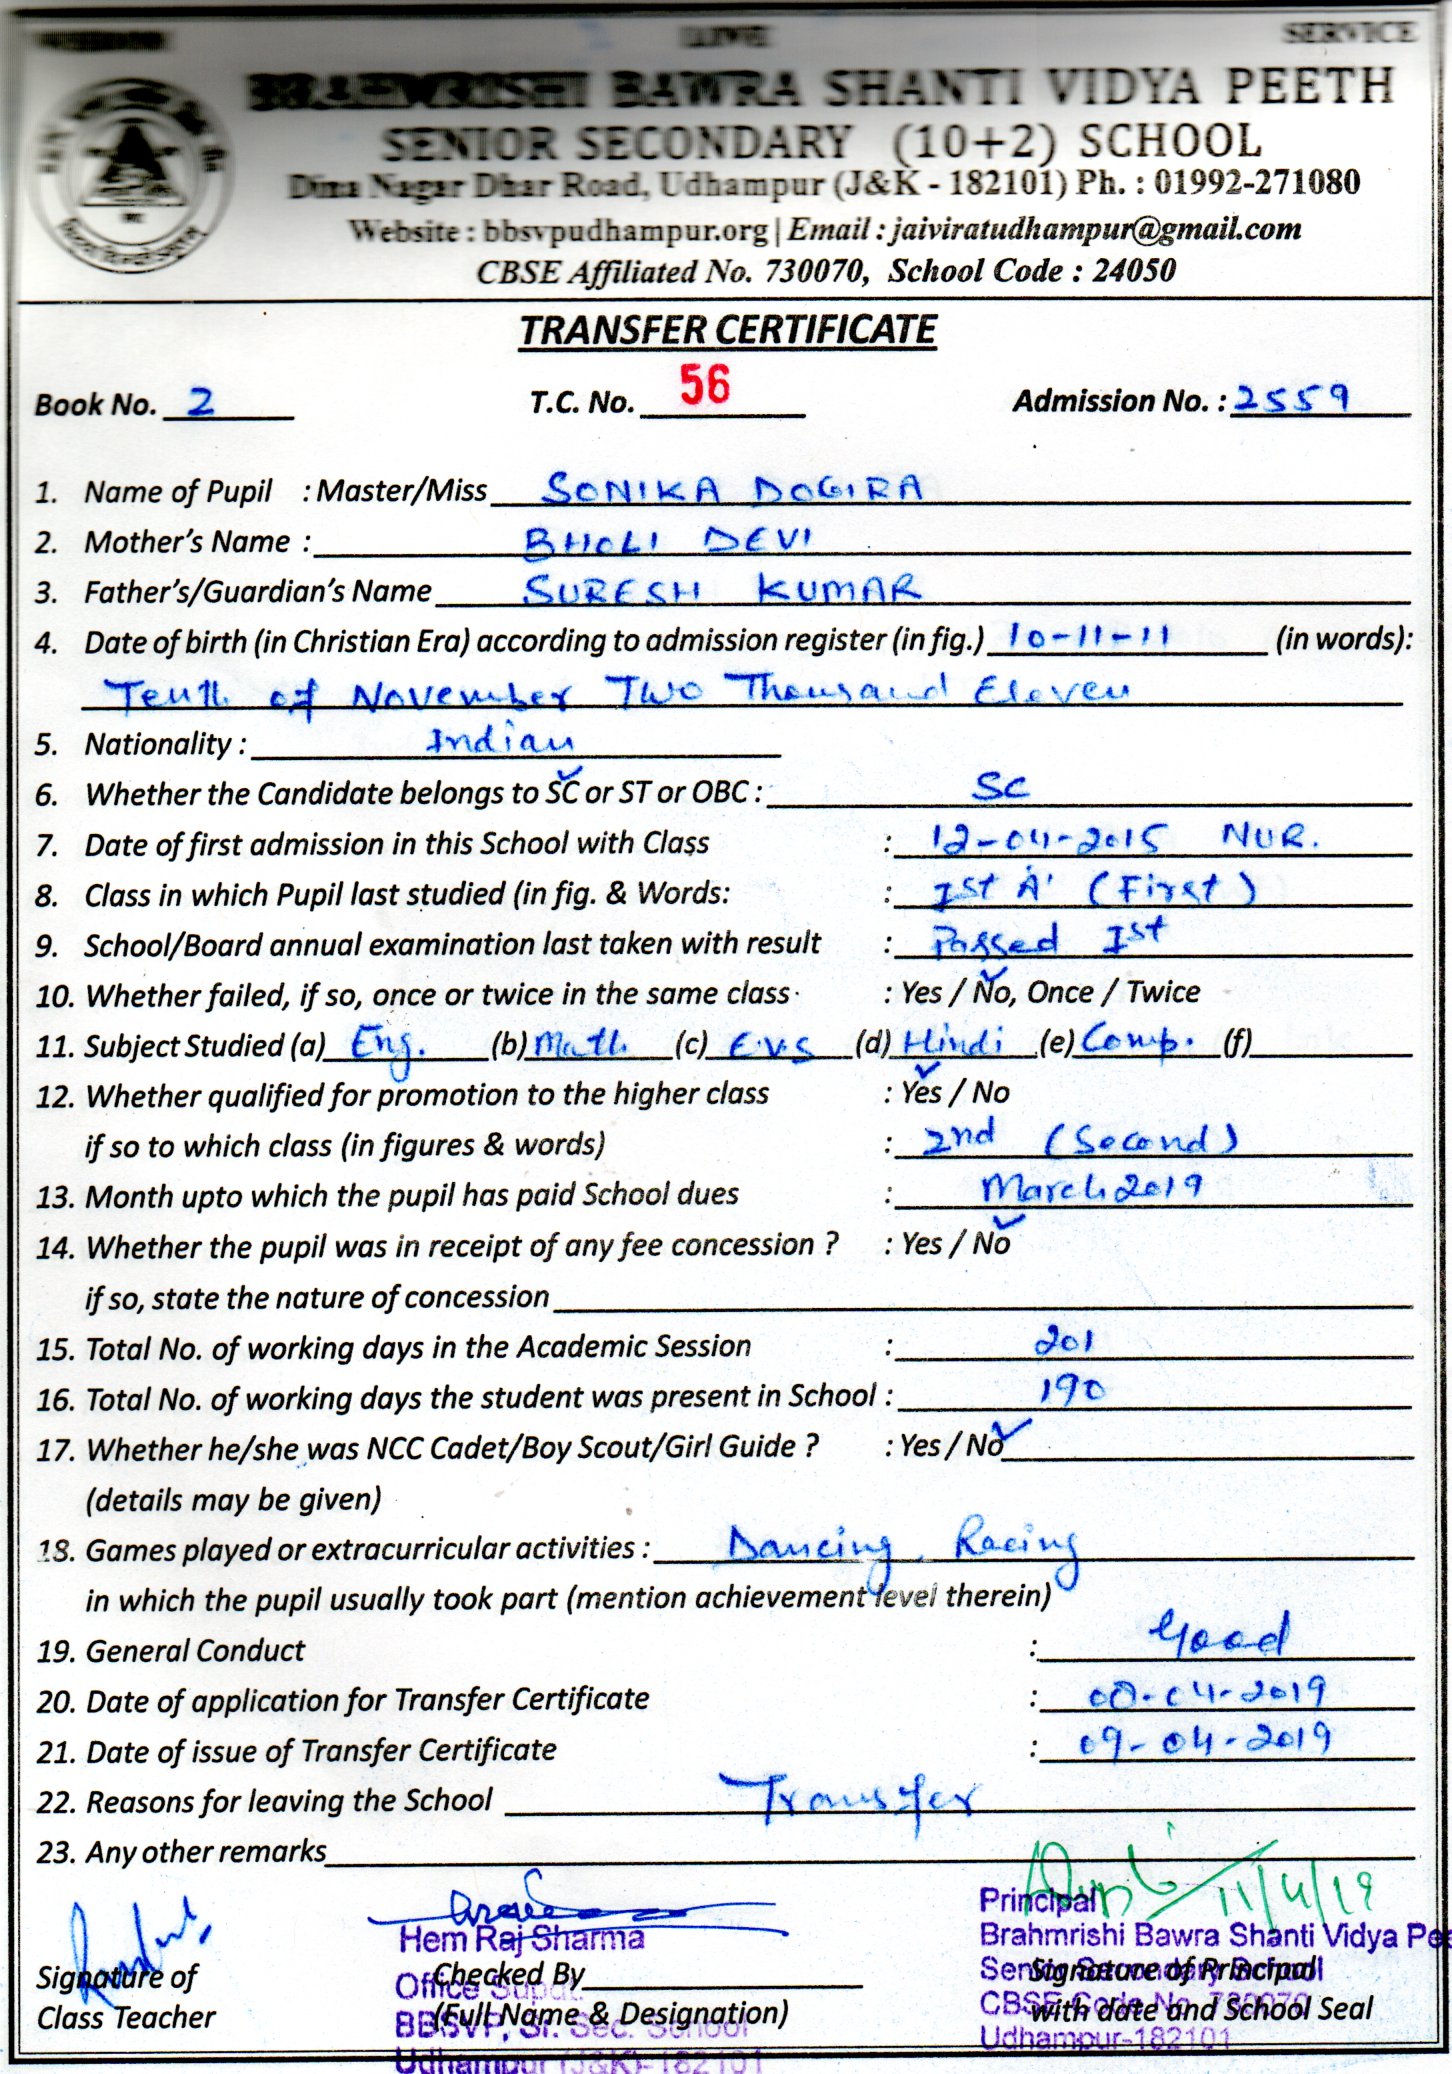 LOVE SERVICE
BRAHMRISHI BAWRA SHANTI VIDYA PEETH
SENIOR SECONDARY (10+2) SCHOOL
Dina Nagar Dhar Road, Udhampur (J&K - 182101) Ph. : 01992-271080
Website : bbsvpudhampur.org | Email : jaiviratudhampur@gmail.com
CBSE Affiliated No. 730070, School Code : 24050
TRANSFER CERTIFICATE
Book No. 2 T.C. No. 56 Admission No. : 2559
1. Name of Pupil : Master/Miss SONIKA DOGIRA
2. Mother's Name : BHOLI DEVI
3. Father's/Guardian's Name SURESH KUMAR
4. Date of birth (in Christian Era) according to admission register (in fig.) 10-11-11 (in words):
Tenth of November Two Thousand Eleven
5. Nationality : Indian
6. Whether the Candidate belongs to SC or ST or OBC : SC
7. Date of first admission in this School with Class : 12-04-2015 NUR.
8. Class in which Pupil last studied (in fig. & Words: : Ist 'A' (First)
9. School/Board annual examination last taken with result : Passed Ist
10. Whether failed, if so, once or twice in the same class : Yes / No, Once / Twice
11. Subject Studied (a) Eng. (b) Math (c) E.V.S (d) Hindi (e) Comp. (f)
12. Whether qualified for promotion to the higher class : Yes / No
if so to which class (in figures & words) : 2nd (Second)
13. Month upto which the pupil has paid School dues : March 2019
14. Whether the pupil was in receipt of any fee concession ? : Yes / No
if so, state the nature of concession
15. Total No. of working days in the Academic Session : 201
16. Total No. of working days the student was present in School : 190
17. Whether he/she was NCC Cadet/Boy Scout/Girl Guide ? : Yes / No
(details may be given)
18. Games played or extracurricular activities : Dancing, Racing
in which the pupil usually took part (mention achievement level therein)
19. General Conduct : Good
20. Date of application for Transfer Certificate : 08-04-2019
21. Date of issue of Transfer Certificate : 09-04-2019
22. Reasons for leaving the School Transfer
23. Any other remarks
11/4/19
Principal
Hem Raj Sharma Brahmrishi Bawra Shanti Vidya Pee
Signature of Checked By Signature of Principal
Office Supdt. Senior Secondary School
Class Teacher (Full Name & Designation) with date and School Seal
BBSVP, Sr. Sec. School CBSE Code No. 730070
Udhampur (J&K)-182101 Udhampur-182101